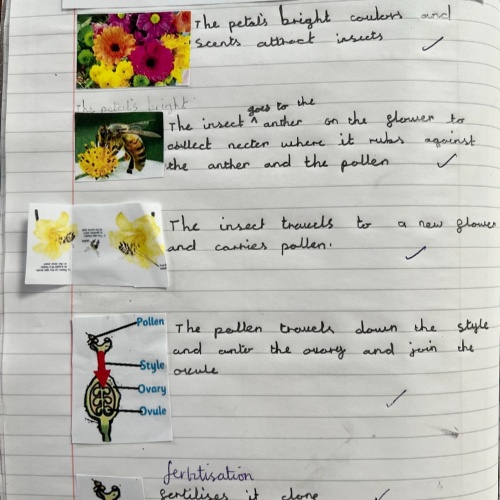 The petals bright coulors and
scents attract insects
The petal's bright
goes to the
The insect ^ anther on the glower to
collect necter where it rubs against
the anther and the pollen
The insect travels to a new glower
and carries pollen.
Pollen
Style
Ovary
Ovule
The pollen travels down the style
and onto the ovary and join the
ovule
ferbtisation
fertilises it clone